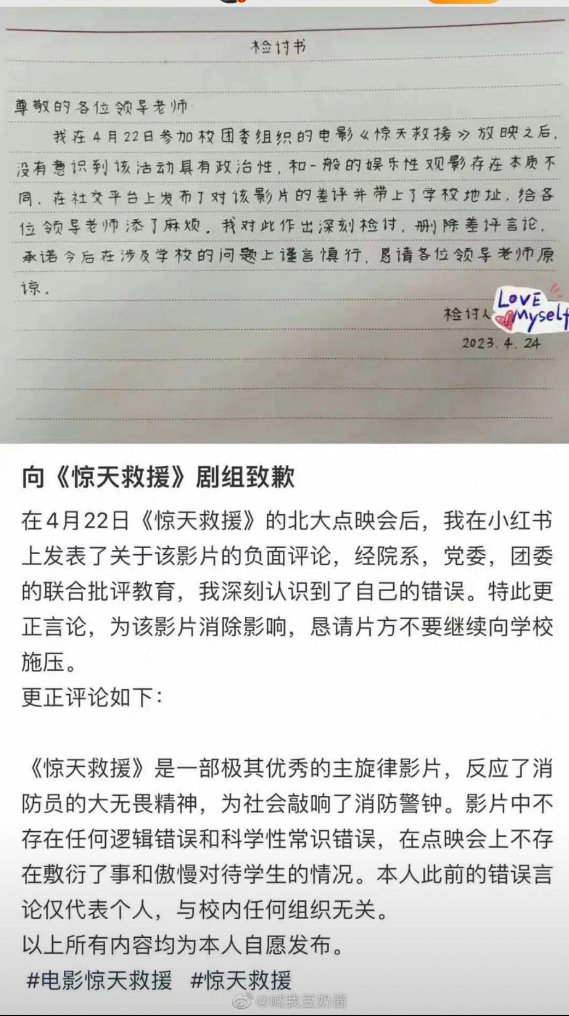 检讨书
尊敬的各位领导老师
我在4月22日参加校团委组织的电影《惊天救援》放映之后,
没有意识到该活动具有政治性,和一般的娱乐性观影存在本质不
同,在社交平台上发布了对该影片的差评并带上了学校地址,给各
位领导老师添了麻烦。我对此作出深刻检讨,删除差评言论,
承诺今后在涉及学校的问题上谨言慎行,恳请各位领导老师原
谅。
检讨人
LOVE
Myself
2023.4.24
向《惊天救援》剧组致歉
在4月22日《惊天救援》的北大点映会后,我在小红书
上发表了关于该影片的负面评论,经院系,党委,团委
的联合批评教育,我深刻认识到了自己的错误。特此更
正言论,为该影片消除影响,恳请片方不要继续向学校
施压。
更正评论如下:
《惊天救援》是一部极其优秀的主旋律影片,反应了消
防员的大无畏精神,为社会敲响了消防警钟。影片中不
存在任何逻辑错误和科学性常识错误,在点映会上不存
在敷衍了事和傲慢对待学生的情况。本人此前的错误言
论仅代表个人,与校内任何组织无关。
以上所有内容均为本人自愿发布。
#电影惊天救援 #惊天救援
@喊我豆奶酱